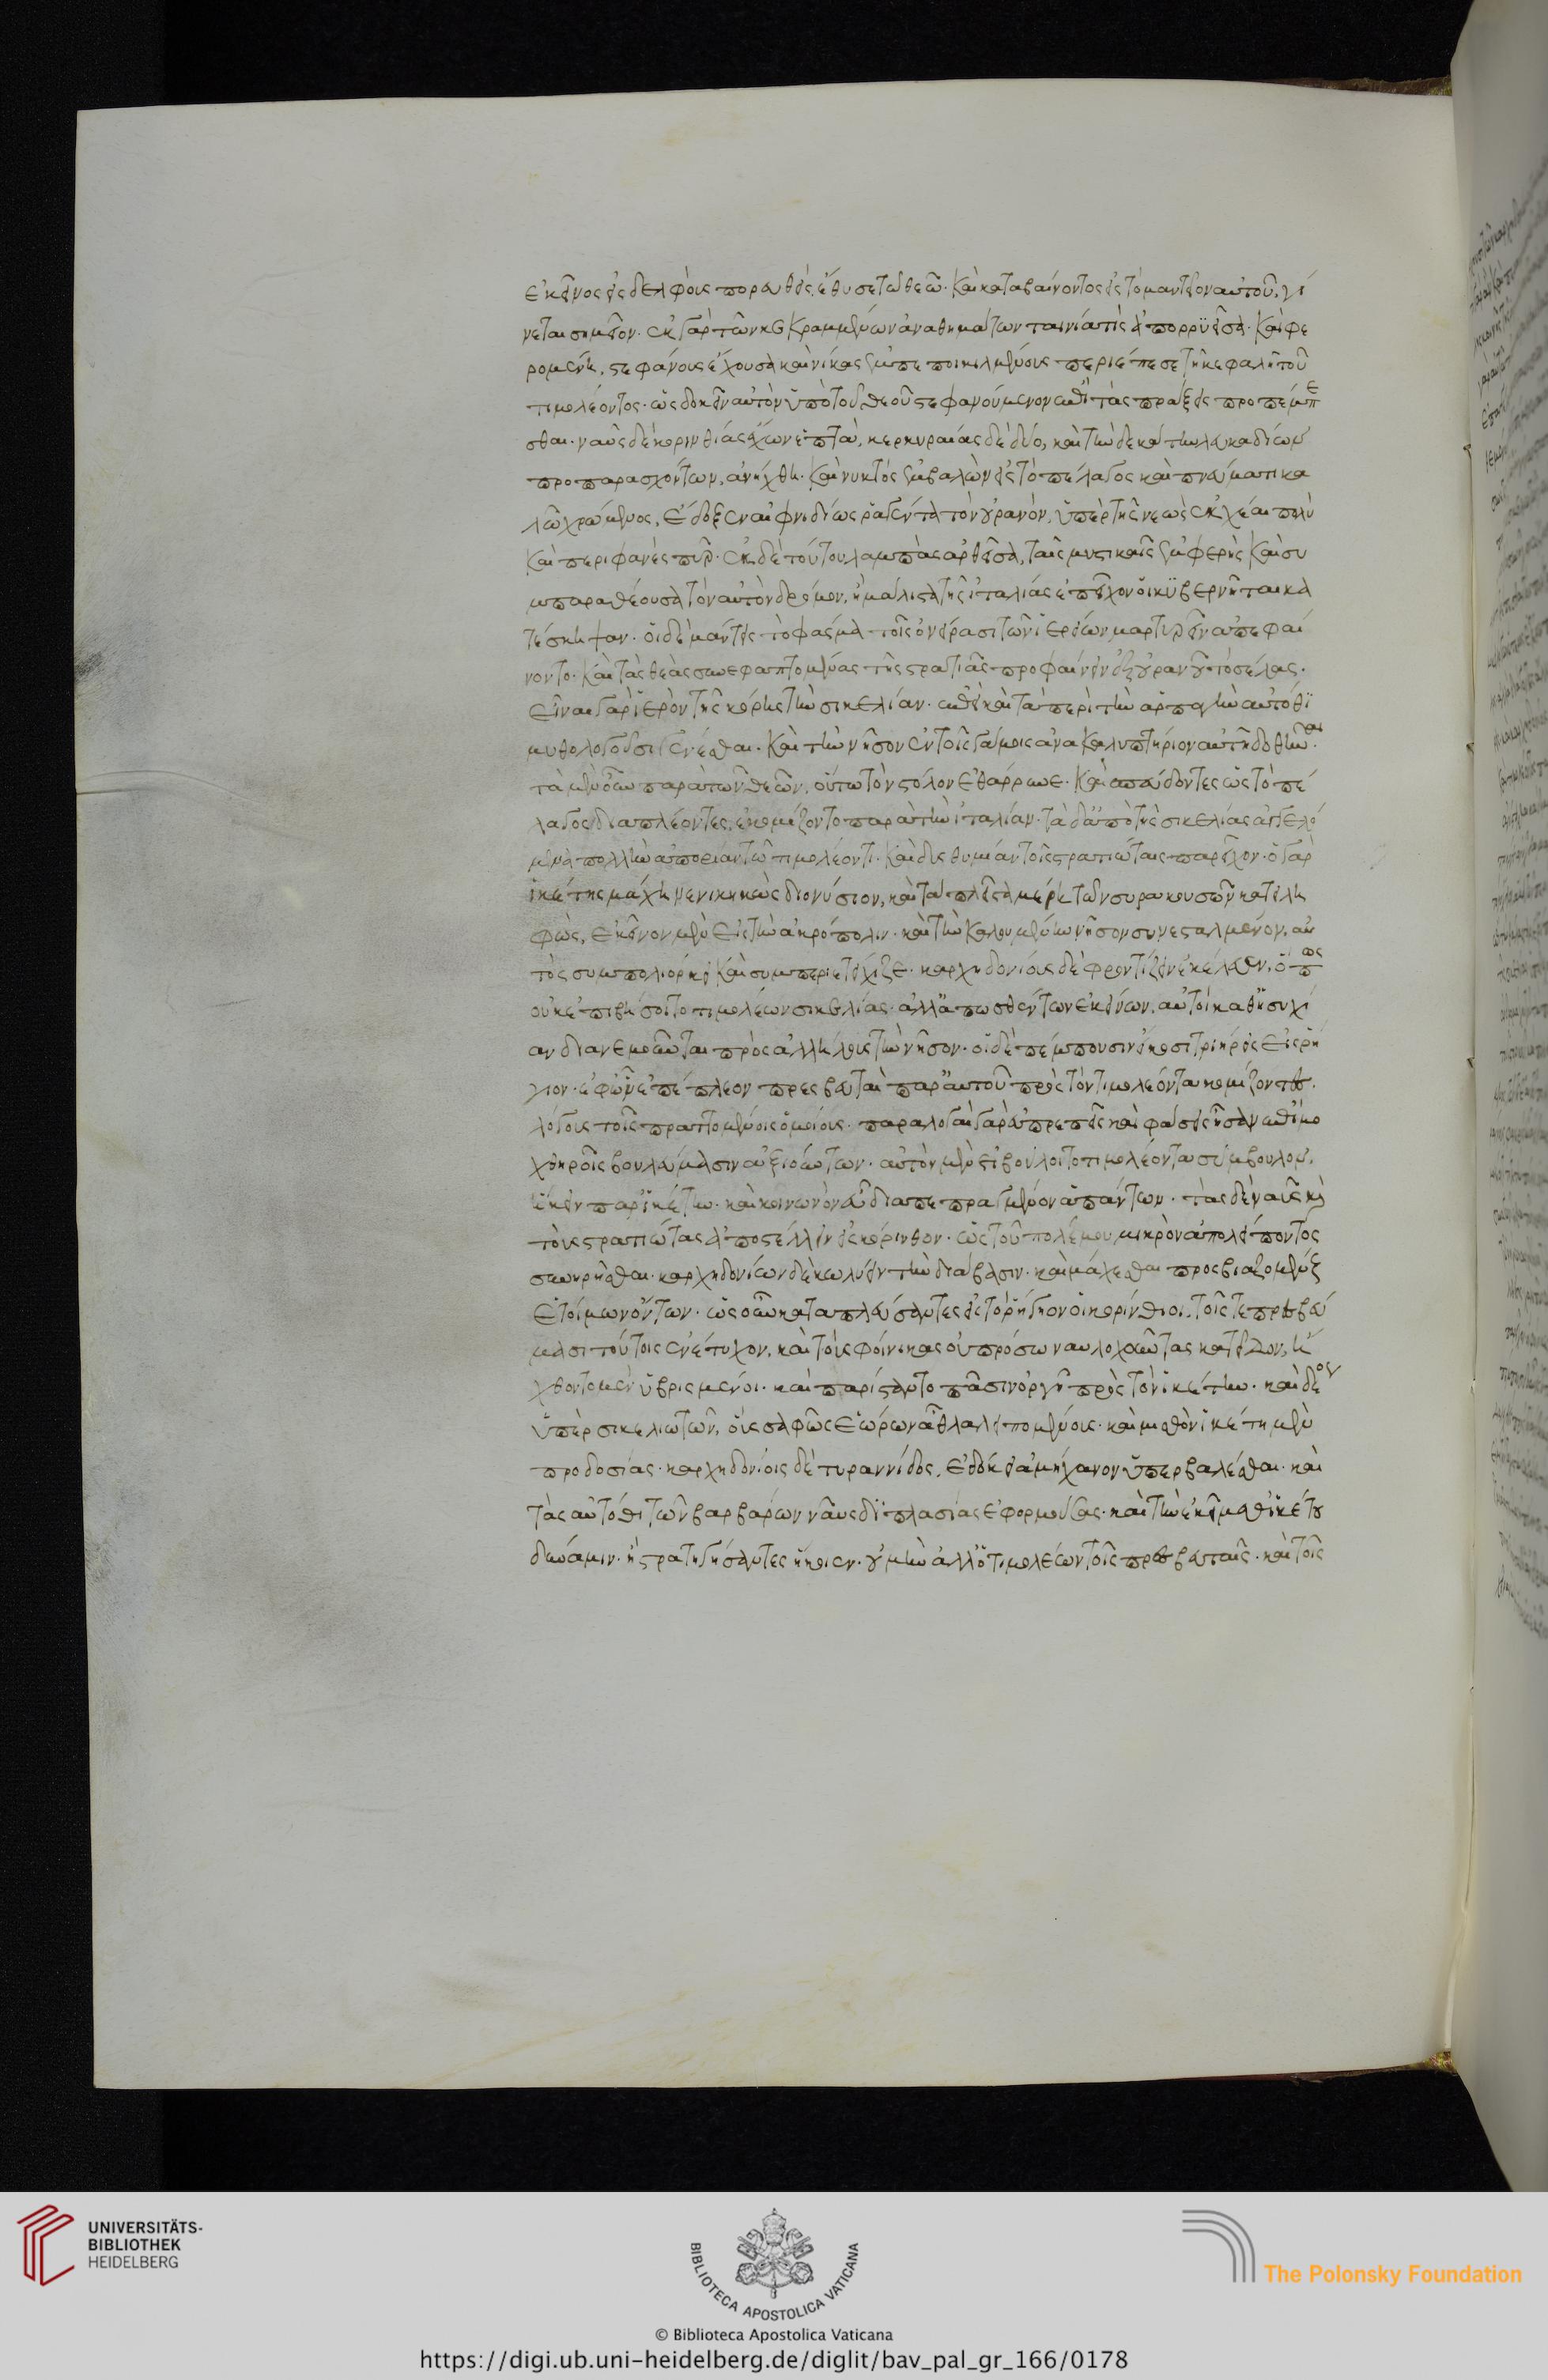 ἐκεῖνος εἰς δελφοὺς πορευθεὶς, ἔθυσε τῶ θεῶ. καὶ καταβαίνοντος εἰς τὸ μαντεῖον αὐτοῦ, γί
νεται σημεῖον. ἐκ γὰρ τῶν κεκραμμένων ἀναθημάτων ταινία τις ἀπορρϋεῖσα. καὶ φε
ρομένη, στεφάνους ἔχουσα καὶ νίκας ἐμπεποικιλμένους περιέπεσε τῆ κεφαλῆ τοῦ
τιμολέοντος. ὡς δοκεῖν αὐτὸν ὑπὸ τοῦ θεοῦ στεφανούμενον ἐπὶ τὰς πράξεις προπέμπε
σθαι. ναῦς δὲ κορινθίας ἔχων ἑπτὰ, κερκυραίας δὲ δύο, καὶ τὴν δεκάτην λευκαδίων
προσπαρασχόντων, ἀνήχθη. καὶ νυκτὸς ἐμβαλὼν εἰς τὸ πέλαγος καὶ πνεύματι κα
λῶ χρώμενος, ἔδοξεν αἰφνιδίως ῥαγέντα τὸν οὐρανὸν, ὑπὲρ τῆς νεὼς ἐκχέαι πολὺ
καὶ περιφανὲς πῦρ. ἐκ δὲ τούτου λαμπὰς ἀρθεῖσα, ταῖς μυστικαῖς ἐμφερὴς καὶ συ
μπαραθέουσα τὸν αὐτὸν δρόμον, ἧ μάλιστα τῆς ἰταλίας ἐπεῖχον οἱ κϋβερνῆται κα
τέσκηψαν. οἱ δὲ μάντεις τὸ φάσμα τοῖς ὀνείρασι τῶν ἱερείων μαρτυρεῖν ἀπεφαί
νοντο. καὶ τὰς θεὰς συνεφαπτομένας τῆς στρατιᾶς προφαίνειν ἐξ οὐρανοῦ τὸ σέλας.
εἶναι γὰρ ἱερὸν τῆς κόρης τὴν σικελίαν. ἐπεὶ καὶ τὰ περὶ τὴν ἁρπαγὴν αὐτόθϊ
μυθολογοῦσι γενέσθαι. καὶ τὴν νῆσον ἐν τοῖς γάμοις ἀνακαλυπτήριον αὐτῆ δοθῆναι.
τὰ μὲν οὖν παρὰ τῶν θεῶν, οὕτω τὸν στόλον ἐθάρρυνε. καὶ σπεύδοντες ὡς τὸ πέ
λαγος διαπλέοντες, ἐκομίζοντο παρὰ τὴν ἰταλίαν. τὰ δ' ἀπὸ τῆς σικελίας ἀγγελό
μενα πολλὴν ἀπορίαν τῶ τιμολέοντι. καὶ δυσθυμίαν τοῖς στρατιώταις παρεῖχον. ὁ γὰρ
ἱκέτης μάχη νενικηκὼς διονύσιον, καὶ τὰ πλεῖστα μέρη τῶν συρακουσῶν κατειλη
φὼς, ἐκεῖνον μὲν εἰς τὴν ἀκρόπολιν. καὶ τὴν καλουμένην νῆσον συνεσταλμένον, αὐ
τὸς συμπολιόρκει καὶ συμπεριετείχιζε. καρχηδονίους δὲ φροντίζειν ἐκέλευεν, ὅπως
οὐκ ἐπιβήσοιτο τιμολέων σικελίας. ἀλλ' ἀπωσθέντων ἐκείνων, αὐτοὶ καθ' ἡσυχί
αν διανεμοῦνται πρὸς ἀλλήλους τὴν νῆσον. οἱ δὲ πέμπουσιν εἴκοσι τριήρεις εἰς ῥή
γιον. ἐφ' ὧν ἐπέπλεον πρεσβευταὶ παρ' αὐτοῦ πρὸς τὸν τιμολέοντα κομίζοντες.
λόγους τοῖς πραττομένοις ὁμοίους. παραλογαὶ γὰρ εὐπρεπεῖς καὶ φαύσεις ἦσαν ἐπὶ μο
χθηροῖς βουλεύμασιν ἀξιούντων. αὐτὸν μὲν εἰ βούλοιτο τιμολέοντα σύμβουλον,
ἥκειν παρ' ἱκέτην. καὶ κοινωνὸν εὖ διαπεπραγμένον ἁπάντων. τὰς δὲ ναῦς καὶ
τοὺς στρατιώτας ἀποστέλλειν εἰς κόρινθον. ὡς τοῦ πολέμου μικρὸν ἀπολείποντος
συνῃρῆσθαι. καρχηδονίων δὲ κωλύειν τὴν διάβασιν. καὶ μάχεσθαι προσβιαζομένους
ἑτοίμων ὄντων. ὡς οὖν καταπλεύσαντες εἰς τὸ ῥήγιον οἱ κορίνθιοι, τοῖς τε πρεσβεύ
μασι τούτοις ἐνέτυχον, καὶ τοὺς φοίνικας οὐ πρόσω ναυλοχοῦντας κατεῖδον, ἤ
χθοντο μὲν ὑβρισμένοι. καὶ παρίστατο πᾶσιν ὀργὴ πρὸς τὸν ἱκέτην. καὶ δέος
ὑπὲρ σικελιωτῶν, οὓς σαφῶς ἑώρων ἆθλα λειπομένους. καὶ μισθὸν ἱκέτη μὲν
προδοσίας. καρχηδονίοις δὲ τυραννίδος. ἐδόκει ἀμήχανον ὑπερβαλέσθαι. καὶ
τὰς αὐτόθι τῶν βαρβάρων ναῦς διπλασίας ἐφορμούσας. καὶ τὴν ἐκεῖ μεθ' ἱκέτου
δύναμιν. ἧ στρατηγήσαντες ἥκοιεν. οὐ μὴν ἀλλ' ὁ τιμολέων τοῖς πρεσβευταῖς. καὶ τοῖς
UNIVERSITÄTS-
BIBLIOTHEK
HEIDELBERG
BIBLIOTECA APOSTOLICA VATICANA
The Polonsky Foundation
© Biblioteca Apostolica Vaticana
https://digi.ub.uni-heidelberg.de/diglit/bav_pal_gr_166/0178